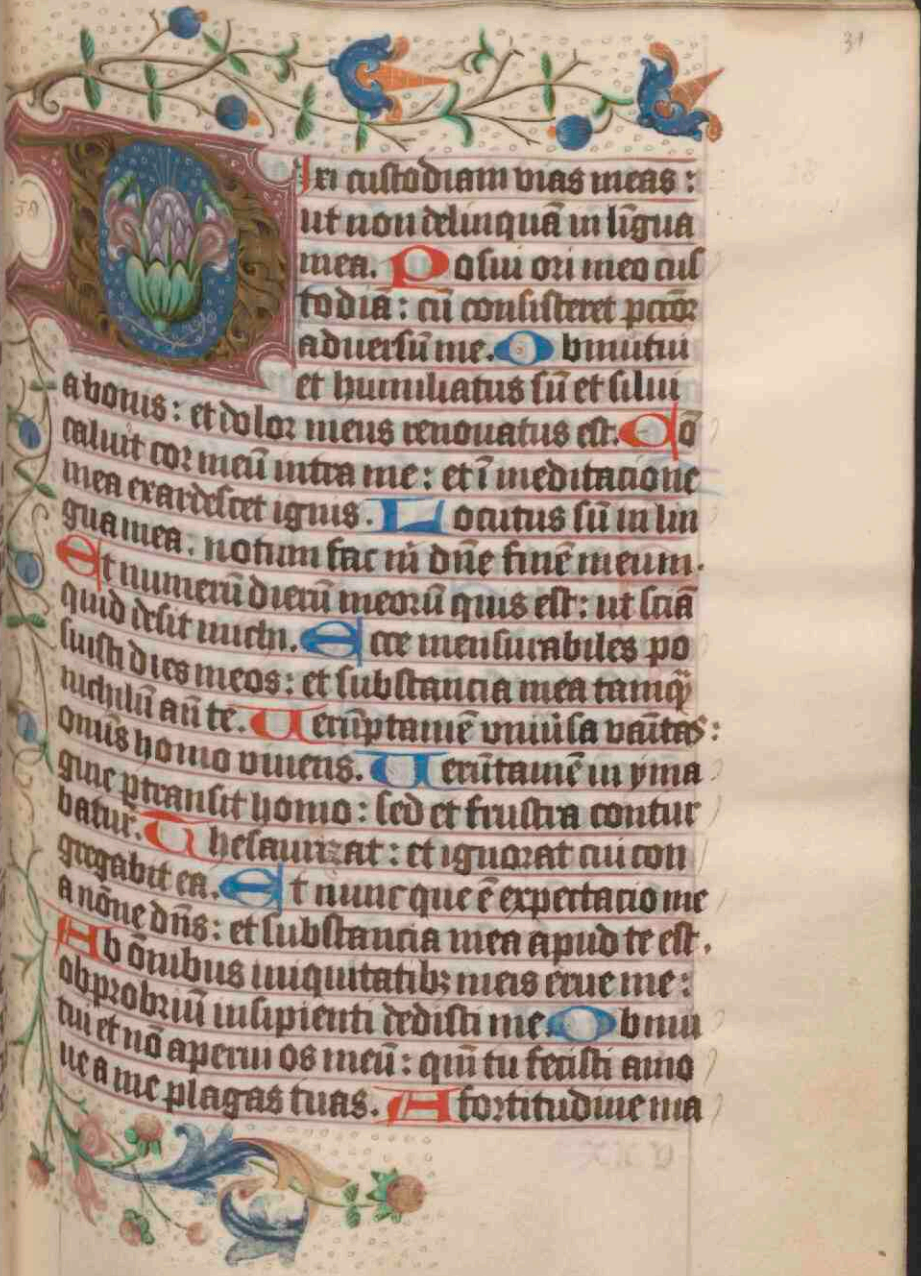 31
38
Dixi custodiam vias meas :
ut non delinquā in līgua
mea. Posui ori meo cus
todiā : cū consisteret pctōr
adversū me. Obmutui
et humiliatus sū et silui
a bonis : et dolor meus renovatus est. Cō
caluit cor meū intra me : et ī meditacione
mea exardescet ignis. Locutus sū in lin
gua mea. notum fac m̄ dn̄e finē meum.
Et numerū dierū meorū quis est : ut sciā
quid desit michi. Ecce mensurabiles po
suisti dies meos : et substancia mea tamq̄
nichilū an̄ te. Verūptamē univ̄sa vaītas :
omīs homo vivens. Verūtamē in yma
gine ptransit homo : sed et frustra contur
batur. Thesaurizat : et ignorat cui con
gregabit ea. Et nunc que ē expectacio me
a nōne dn̄s : et substancia mea apud te est.
Ab ōnibus iniquitatibꝫ meis erue me :
obprobriū insipienti dedisti me. Obmu
tui et nō aperui os meū : qm̄ tu fecisti amo
ve a me plagas tuas. A fortitudine ma